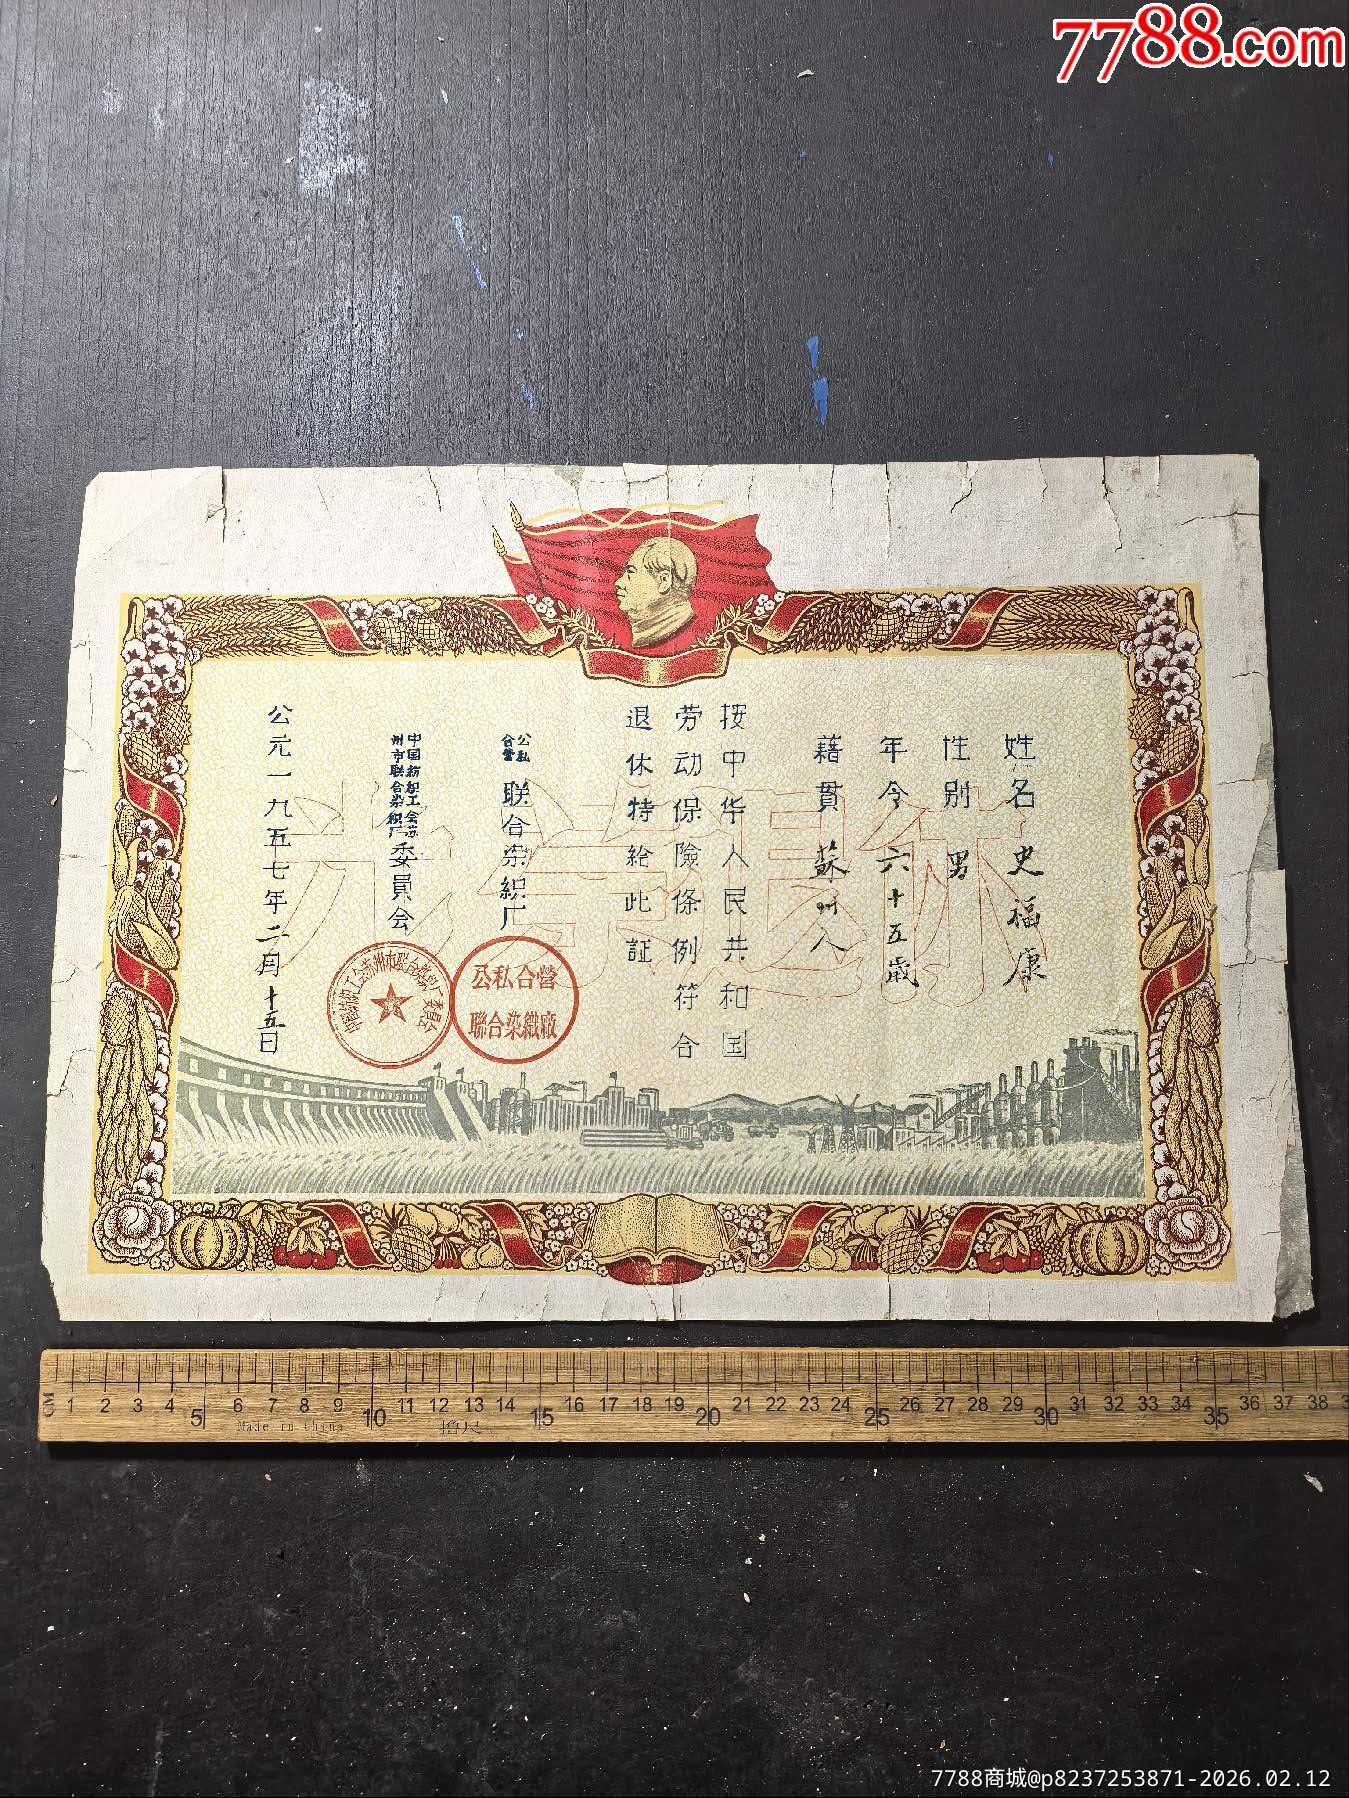 7788.com
姓名 史福康
性别 男
年令 六十五歲
藉貫 蘇州人
按中华人民共和国
劳动保險條例符合
退休特给此証
公私合营 联合染織厂
中国紡織工会苏州市联合染織厂委員会
公元一九五七年二月十五日
光荣退休
公私合營
聯合染織廠
CM 1 2 3 4 5 6 7 8 9 10 11 12 13 14 15 16 17 18 19 20 21 22 23 24 25 26 27 28 29 30 31 32 33 34 35 36 37 38
Made in China
7788商城@p8237253871-2026.02.12